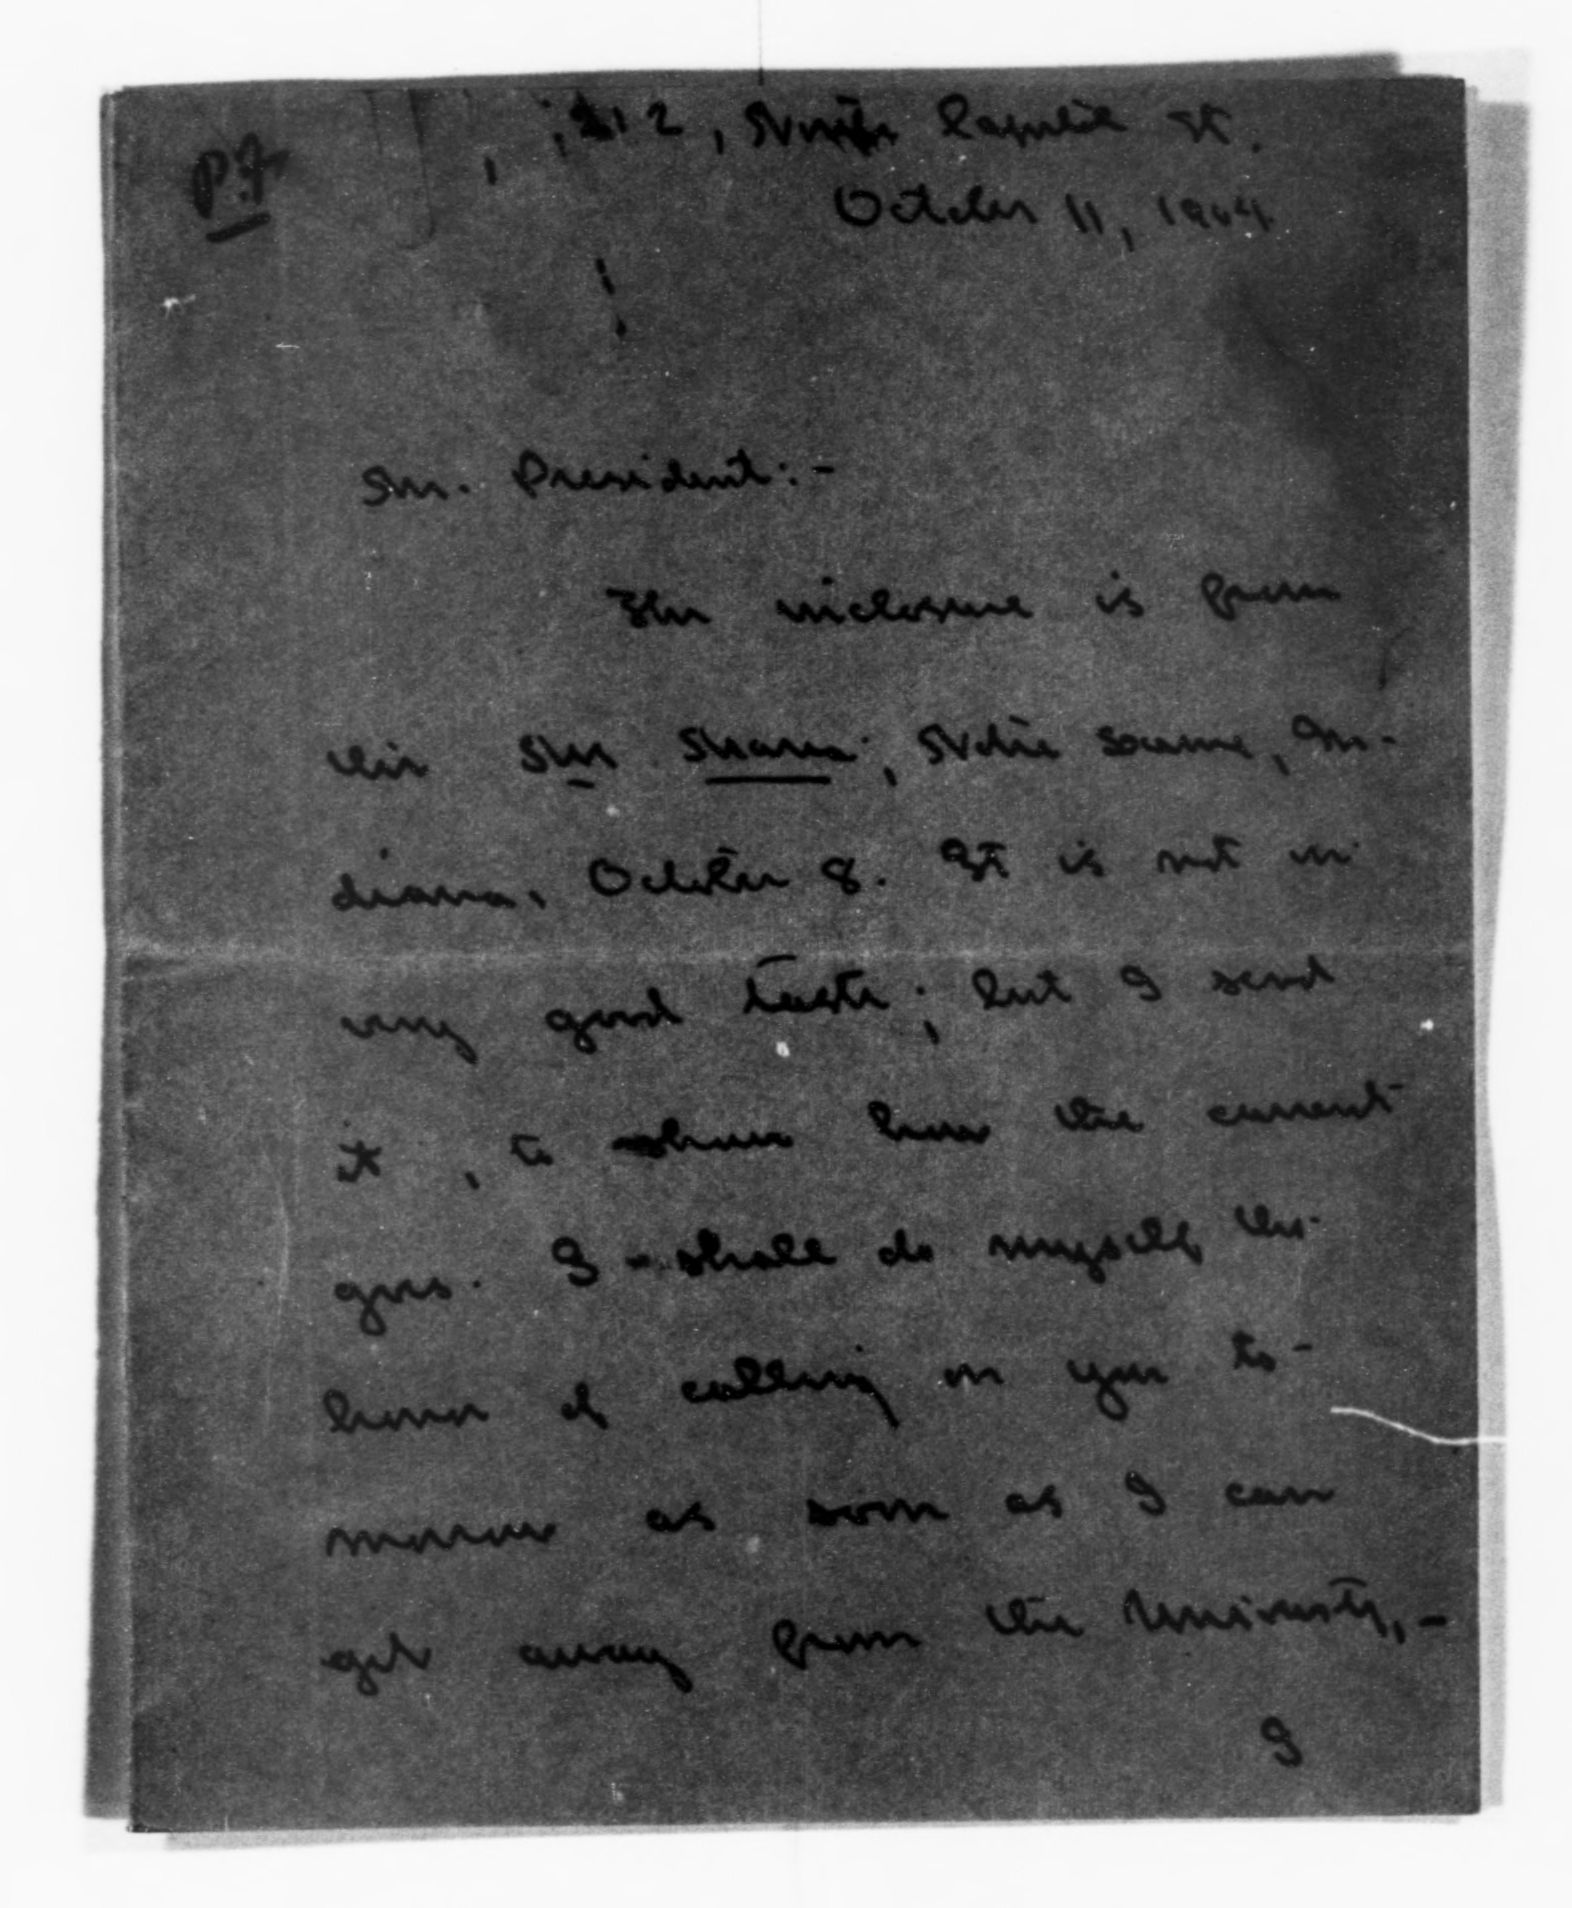 P.F.
212, North Capitol St.
October 11, 1904.
Mr. President:-
The inclosure is from
the Ave Maria; Notre Dame, In-
diana, October 8. It is not in
very good taste; but I send
it, to show how the current
goes. I shall do myself the
honor of calling on you to-
morrow as soon as I can
get away from the University,-
I